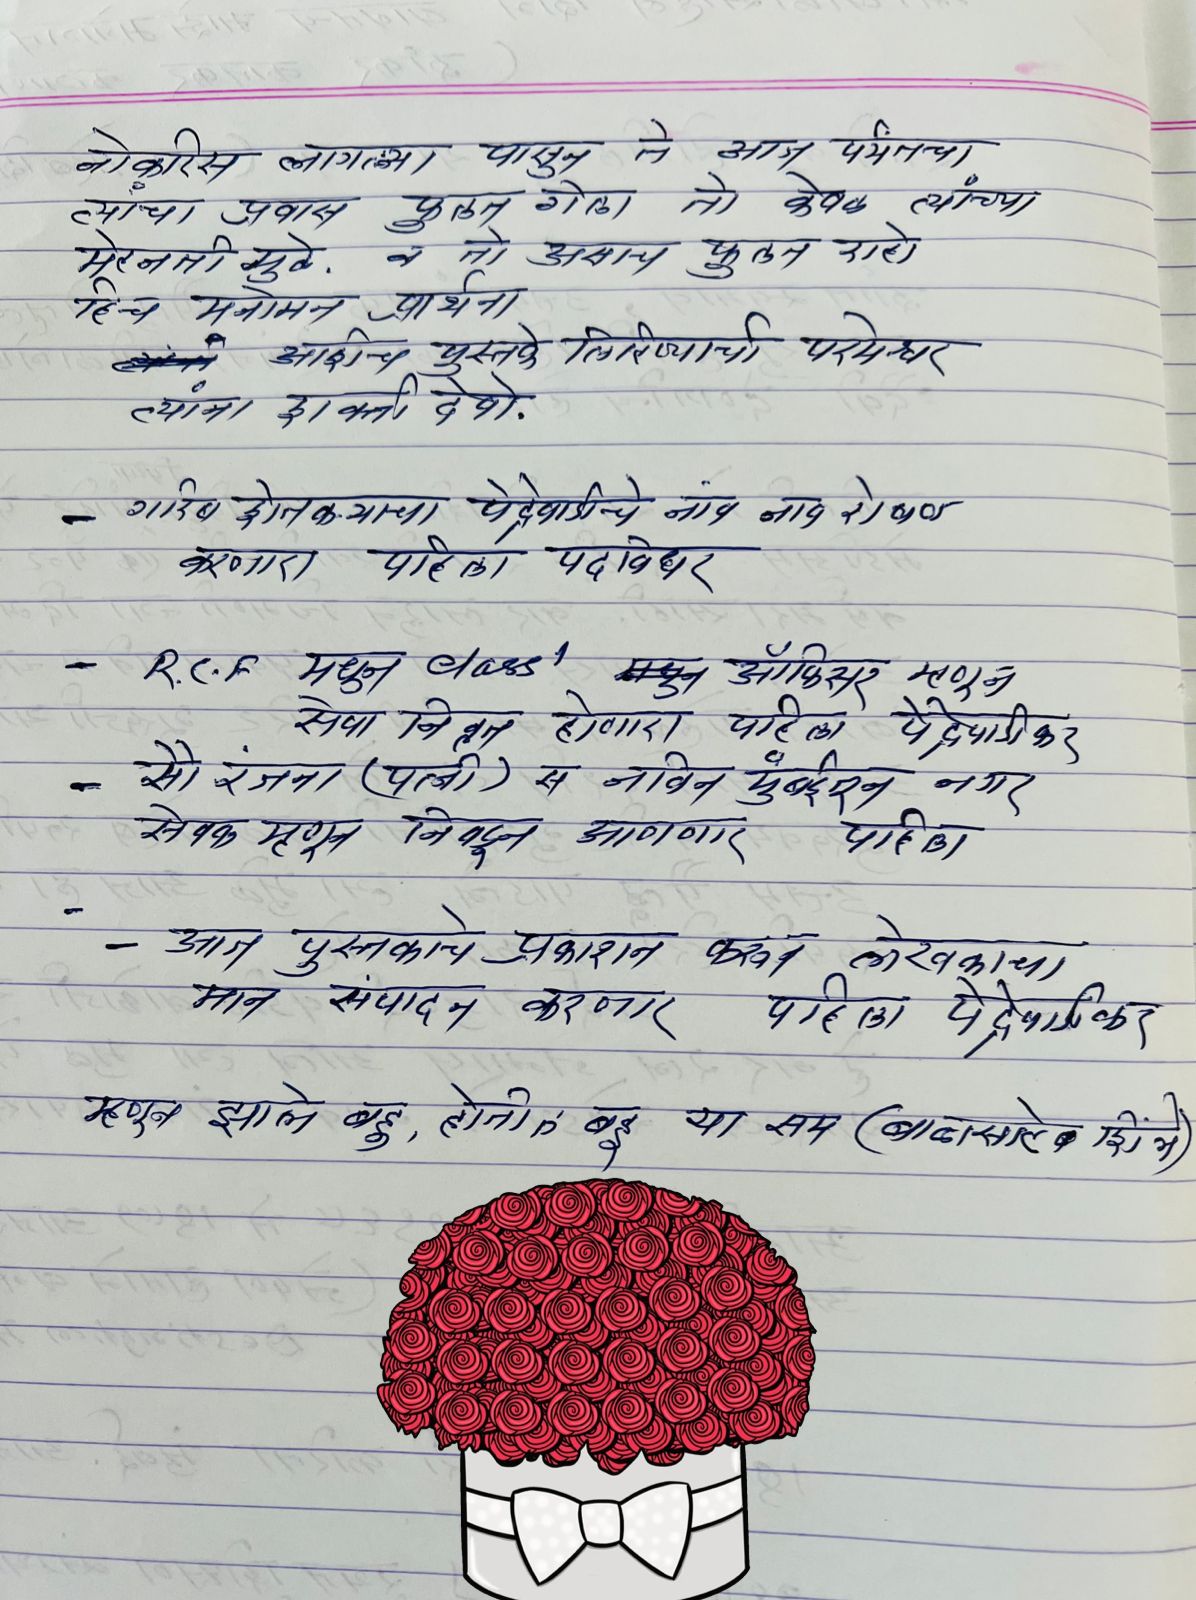 नोकरिस लागल्या पासुन ते आज पर्यंतचा
त्यांचा प्रवास फुलत गेला तो केवळ त्यांच्या
मेहनती मुळे. व तो असाच फुलत राहो
हिच मनोमन प्रार्थना
अशीच पुस्तके लिहिण्याची परमेश्वर
त्यांना शक्ती देवो.
- गरिब शेतकऱ्याचा पेंद्रेवाडीचे नांव नाव रोषण
करणारा पहिला पदविधर
- R.C.F मधुन class 1 ऑफिसर म्हणून
सेवा निवृत होणारा पहिला पेंद्रेवाडीकर
- सौ रंजना (पत्नी) स नविन मुंबईतून नगर
सेवक म्हणून निवडून आणणार पहिला
-
- आज पुस्तकाचे प्रकाशन करून लेखकाचा
मान संपादन करणार पहिला पेंद्रेवाडीकर
म्हणून झाले बहु, होतील बहू या सम (बाळासाहेब शिंगे)